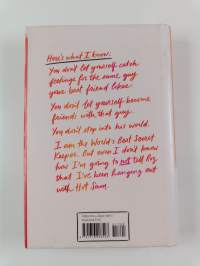 Here's what I know:
You don't let yourself catch
feelings for the same guy
your best friend likes.
You don't let yourself become
friends with that guy.
You don't step into his world.
I am the World's Best Secret
Keeper. But even I don't know
how I'm going to not tell Roz
that I've been hanging out
with Hot Sam.